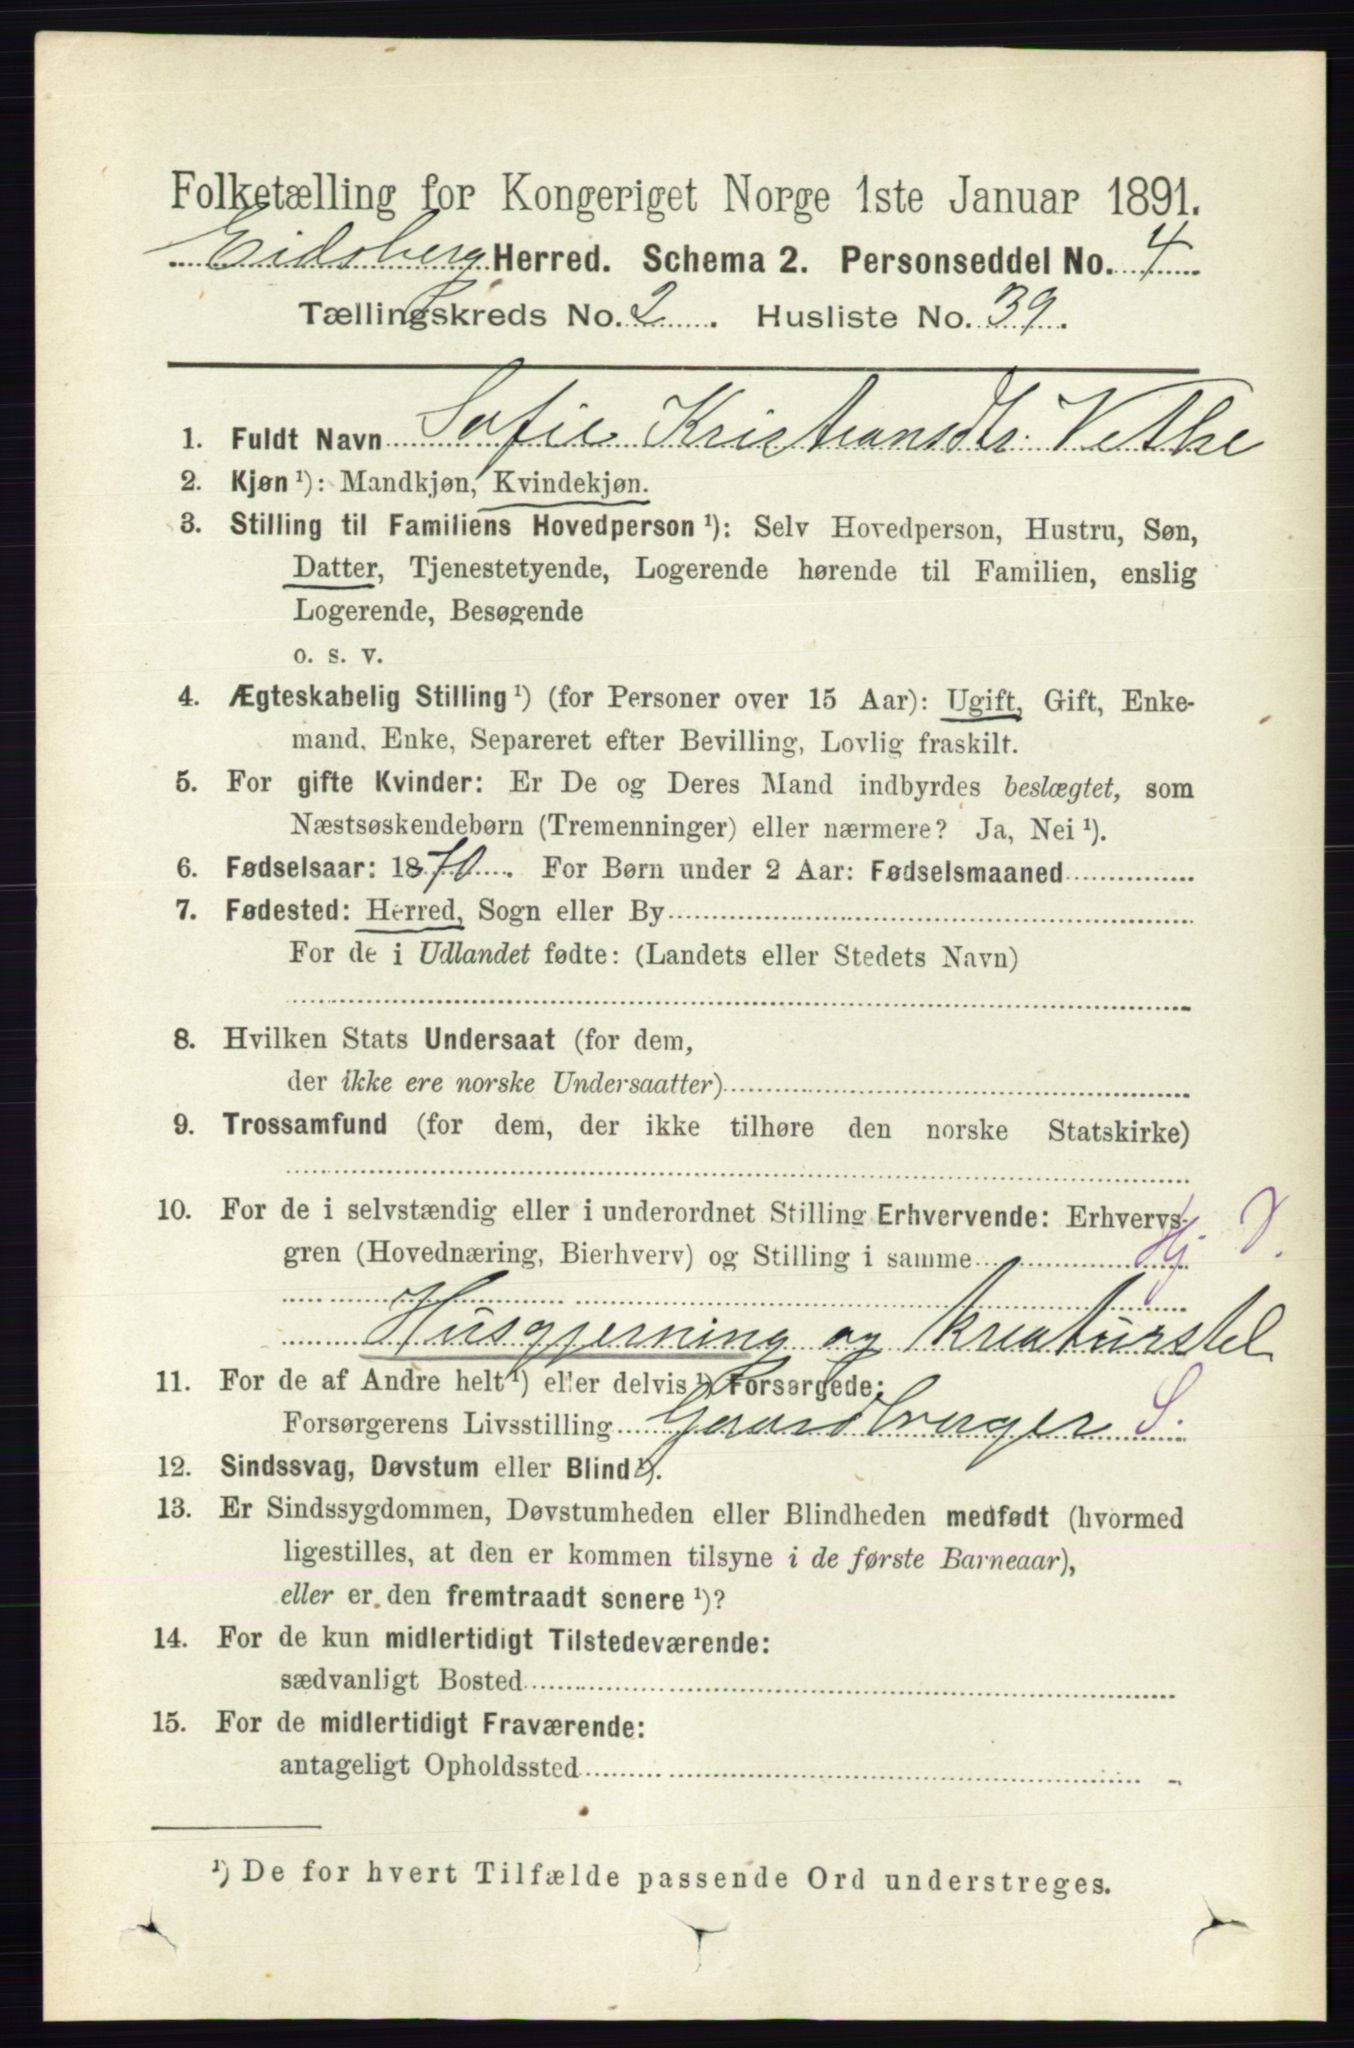 Folketælling for Kongeriget Norge 1ste Januar 1891.
Eidsberg Herred. Schema 2. Personseddel No. 4
Tællingskreds No. 2. Husliste No. 39.
1. Fuldt Navn Sofie Kristiansdtr. Vethe
2. Kjøn ¹): Mandkjøn, Kvindekjøn.
3. Stilling til Familiens Hovedperson ¹): Selv Hovedperson, Hustru, Søn,
Datter, Tjenestetyende, Logerende hørende til Familien, enslig
Logerende, Besøgende
o. s. v.
4. Ægteskabelig Stilling ¹) (for Personer over 15 Aar): Ugift, Gift, Enke-
mand, Enke, Separeret efter Bevilling, Lovlig fraskilt.
5. For gifte Kvinder: Er De og Deres Mand indbyrdes beslægtet, som
Næstsøskendebørn (Tremenninger) eller nærmere? Ja, Nei ¹).
6. Fødselsaar: 1870. For Børn under 2 Aar: Fødselsmaaned
7. Fødested: Herred, Sogn eller By
For de i Udlandet fødte: (Landets eller Stedets Navn)
8. Hvilken Stats Undersaat (for dem,
der ikke ere norske Undersaatter)
9. Trossamfund (for dem, der ikke tilhøre den norske Statskirke)
10. For de i selvstændig eller i underordnet Stilling Erhvervende: Erhvervs-
gren (Hovednæring, Bierhverv) og Stilling i samme Hj.
Husgjerning og kreaturstel
11. For de af Andre helt ¹) eller delvis ¹) Forsørgede:
Forsørgerens Livsstilling Gaardbruger S.
12. Sindssvag, Døvstum eller Blind ¹).
13. Er Sindssygdommen, Døvstumheden eller Blindheden medfødt (hvormed
ligestilles, at den er kommen tilsyne i de første Barneaar),
eller er den fremtraadt senere ¹)?
14. For de kun midlertidigt Tilstedeværende:
sædvanligt Bosted
15. For de midlertidigt Fraværende:
antageligt Opholdssted
¹) De for hvert Tilfælde passende Ord understreges.